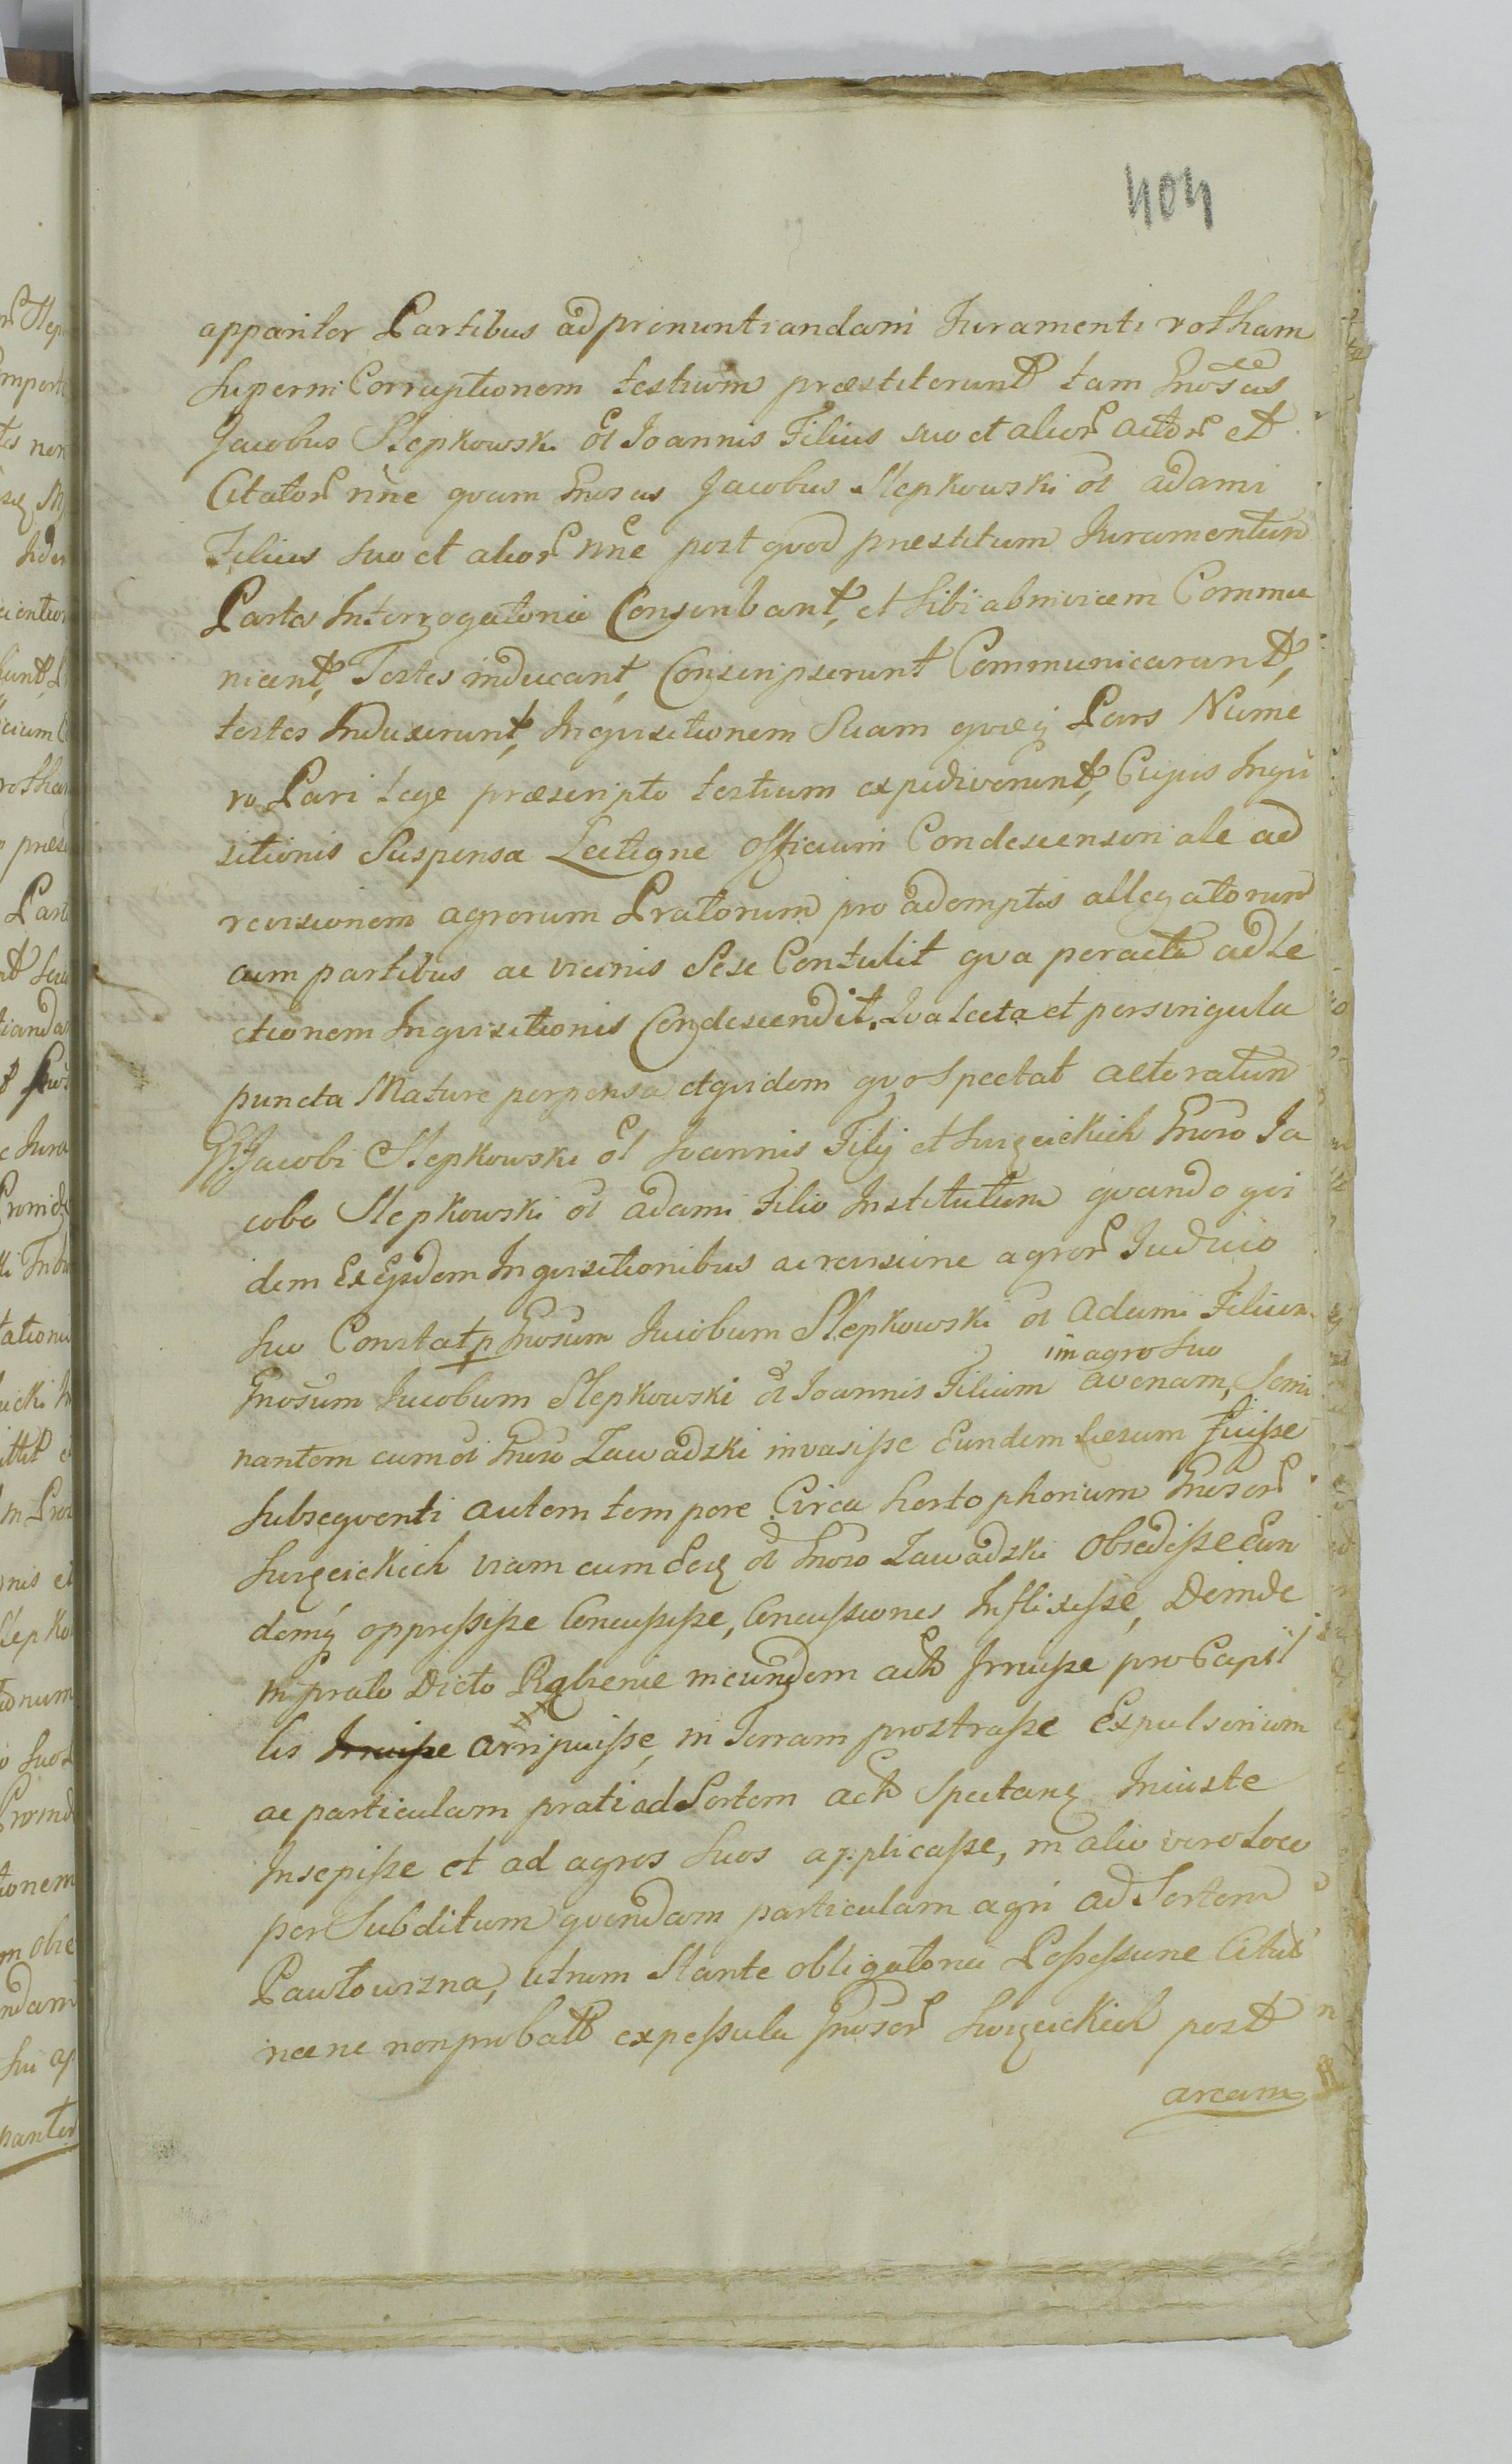 404
apparitor Partibus ad pronuntiandam Juramenti rotham
super ni Corruptionem testium præstiterunt tam Gnosus
Jacobus Slepkowski ol Joannis Filius suo et alior actor et
Citator nne qvam Gnosus Jacobus Slepkowski ol adami
Filius suo et alior nne post qvod præstitum Juramentum
Partes Interrogatoria Conscribant, et sibi ab invicem Commu
nicent, Testes inducant, Conscripserunt Communicarunt,
testes Induxerunt, Inqvisitionem Suam qvæq Pars Nume
ro Pari lege præscripto testium expediverunt, Cujus Inqvi
sitionis Suspensa Lectione Officium Condescensoriale ad
revisionem agrorum Pratorum pro ademptis allegatorum
cum partibus ac vicinis Sese Contulit qva peracta ad Le
ctionem Inqvisitionis Condescendit. Qva lecta et per singula
puncta Mature perpensa et qvidem qvo Spectat actoratum
GG Jacobi Slepkowski ol Joannis Filij et Surzeickich Gnoso Ja
cobo Slepkowski ol adami Filio Institutum qvando qvi
dem Ex Ejsdem Inqvisitionibus ac revisione agror Judicio
suo Constat p Gnosum Jacobum Slepkowski ol Adami Filium
in agro suo
Gnosum Jacobum Slepkowski ol Joannis Filium avenam, Semi
nantem cum ol Gnoso Zawadzki invasisse Eundem læsum fuisse
subseqventi autem tempore Circa hortophorium Gnosor
Surzeickich viam cum ol Gnoso Zawadzki Obsedisse Eun
demq oppressisse Concussisse, Concussiones Inflixisse, Deinde
in prato Dicto in eundem act Irruisse pro Capil
lis Irruisse arripuisse, in Terram prostrasse Expulsorium
ac particulam prati ad Sortem act Spectan Injuste
Insepisse et ad agros suos applicasse, in alio vero Loco
per Subditum qvendam particulam agri ad Sortem
Pawłowizna, utrum Stante obligatoria Possessione Citati
nec ne non probatt expessula Gnosor Surzeickich post
arcam